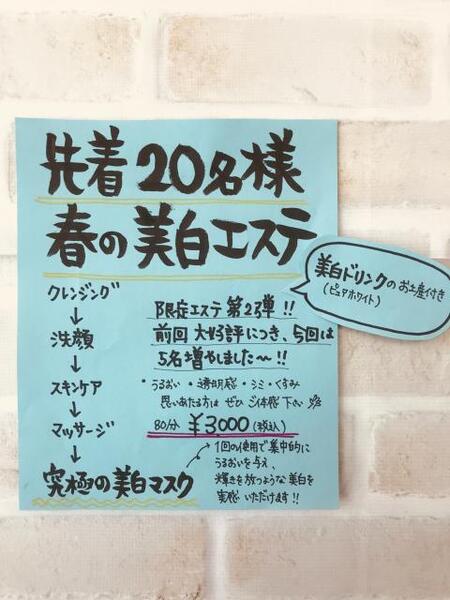 先着20名様
春の美白エステ
美白ドリンクのお土産付き
(ピュアホワイト)
クレンジング
↓
洗顔
↓
スキンケア
↓
マッサージ
↓
究極の美白マスク
限定エステ第2弾!!
前回大好評につき、今回は
5名増やしました〜!!
・うるおい・透明感・シミ・くすみ
思いあたる方はぜひご体感下さい
80分 ¥3,000(税込)
1回の使用で集中的に
うるおいを与え、
輝きを放つような美白を
実感いただけます!!